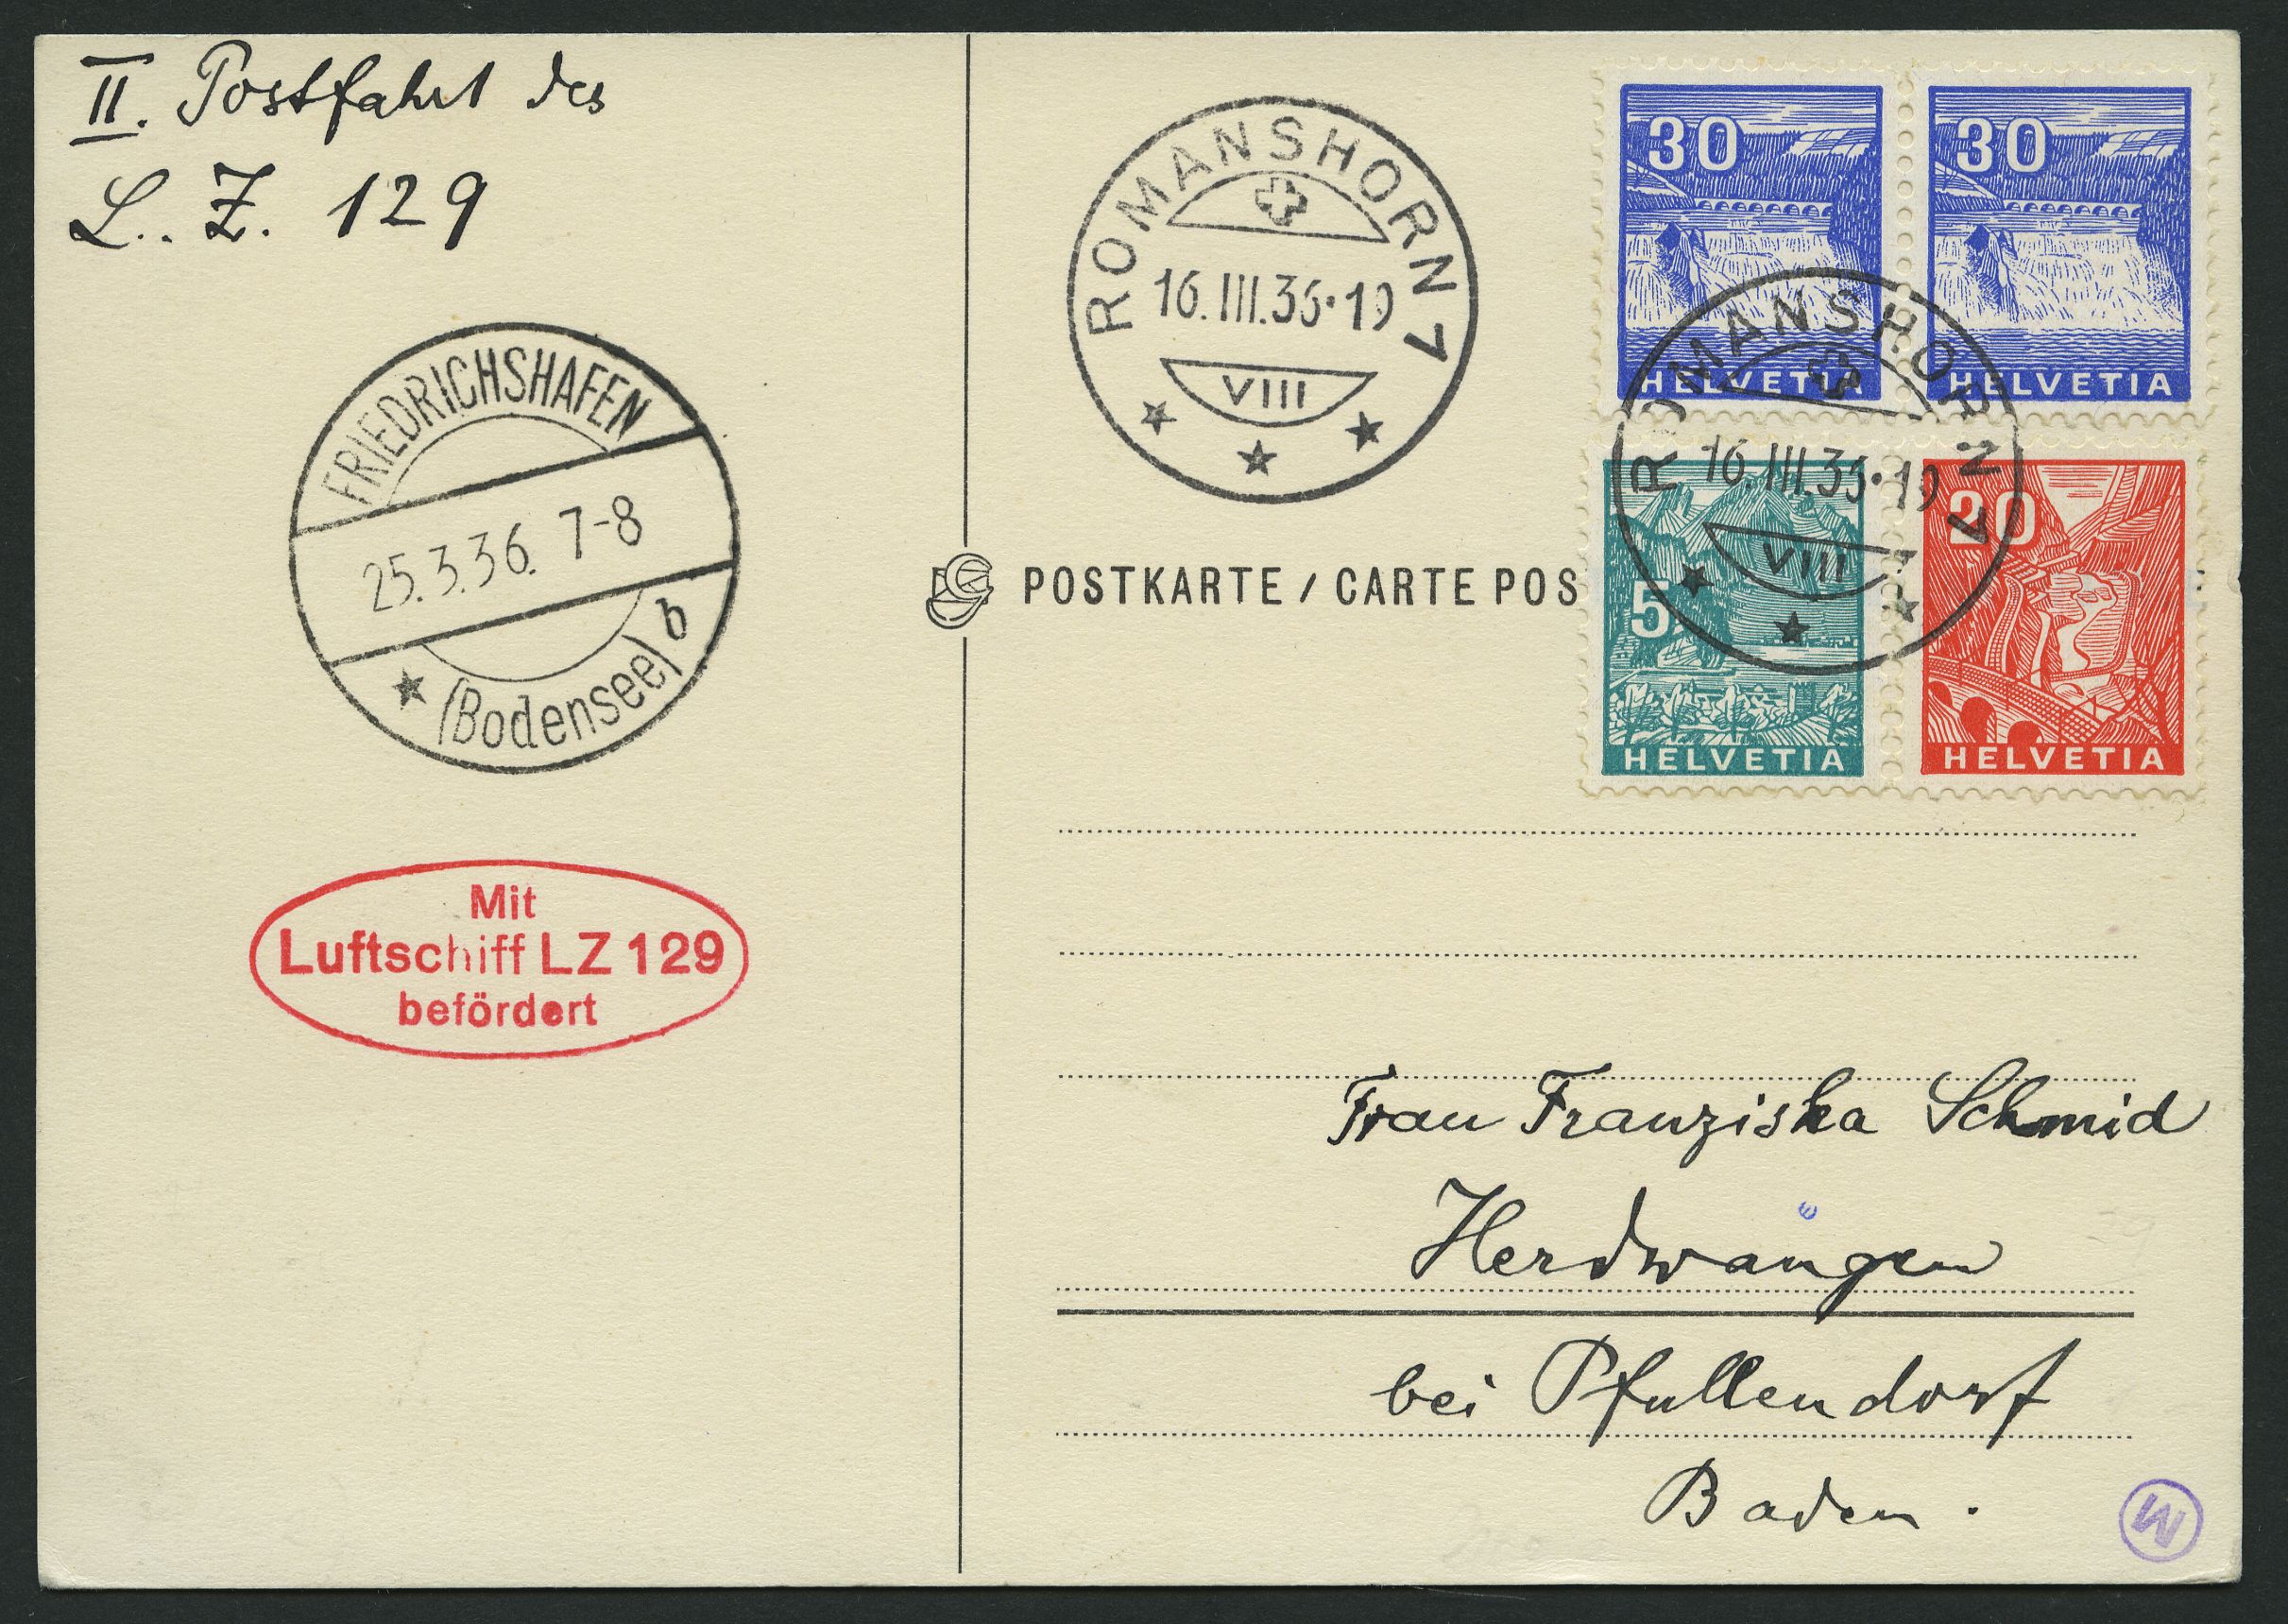 II. Postfahrt des
L. Z. 129
FRIEDRICHSHAFEN
25.3.36. 7-8
(Bodensee) b
Mit
Luftschiff LZ 129
befördert
ROMANSHORN 7
16.III.36·19
VIII
POSTKARTE / CARTE POS
30
HELVETIA
30
HELVETIA
5
HELVETIA
20
HELVETIA
ROMANSHORN 7
16.III.36·19
VIII
Frau Franziska Schmid
Herdwangen
bei Pfullendorf
Baden.
M